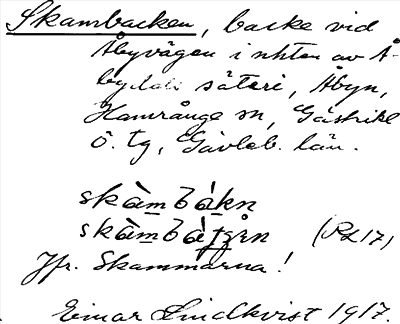 Skambacken, backe vid
Åbyvägen i nhten av Å-
bydals säteri, Åbyn,
Hamrånge sn, Gästrikl
ö. tg, Gävleb. län.
skàmbákn
skàmbàʃʒrn (RL17)
Jfr. Skammarna!
Einar Lindkvist 1917.